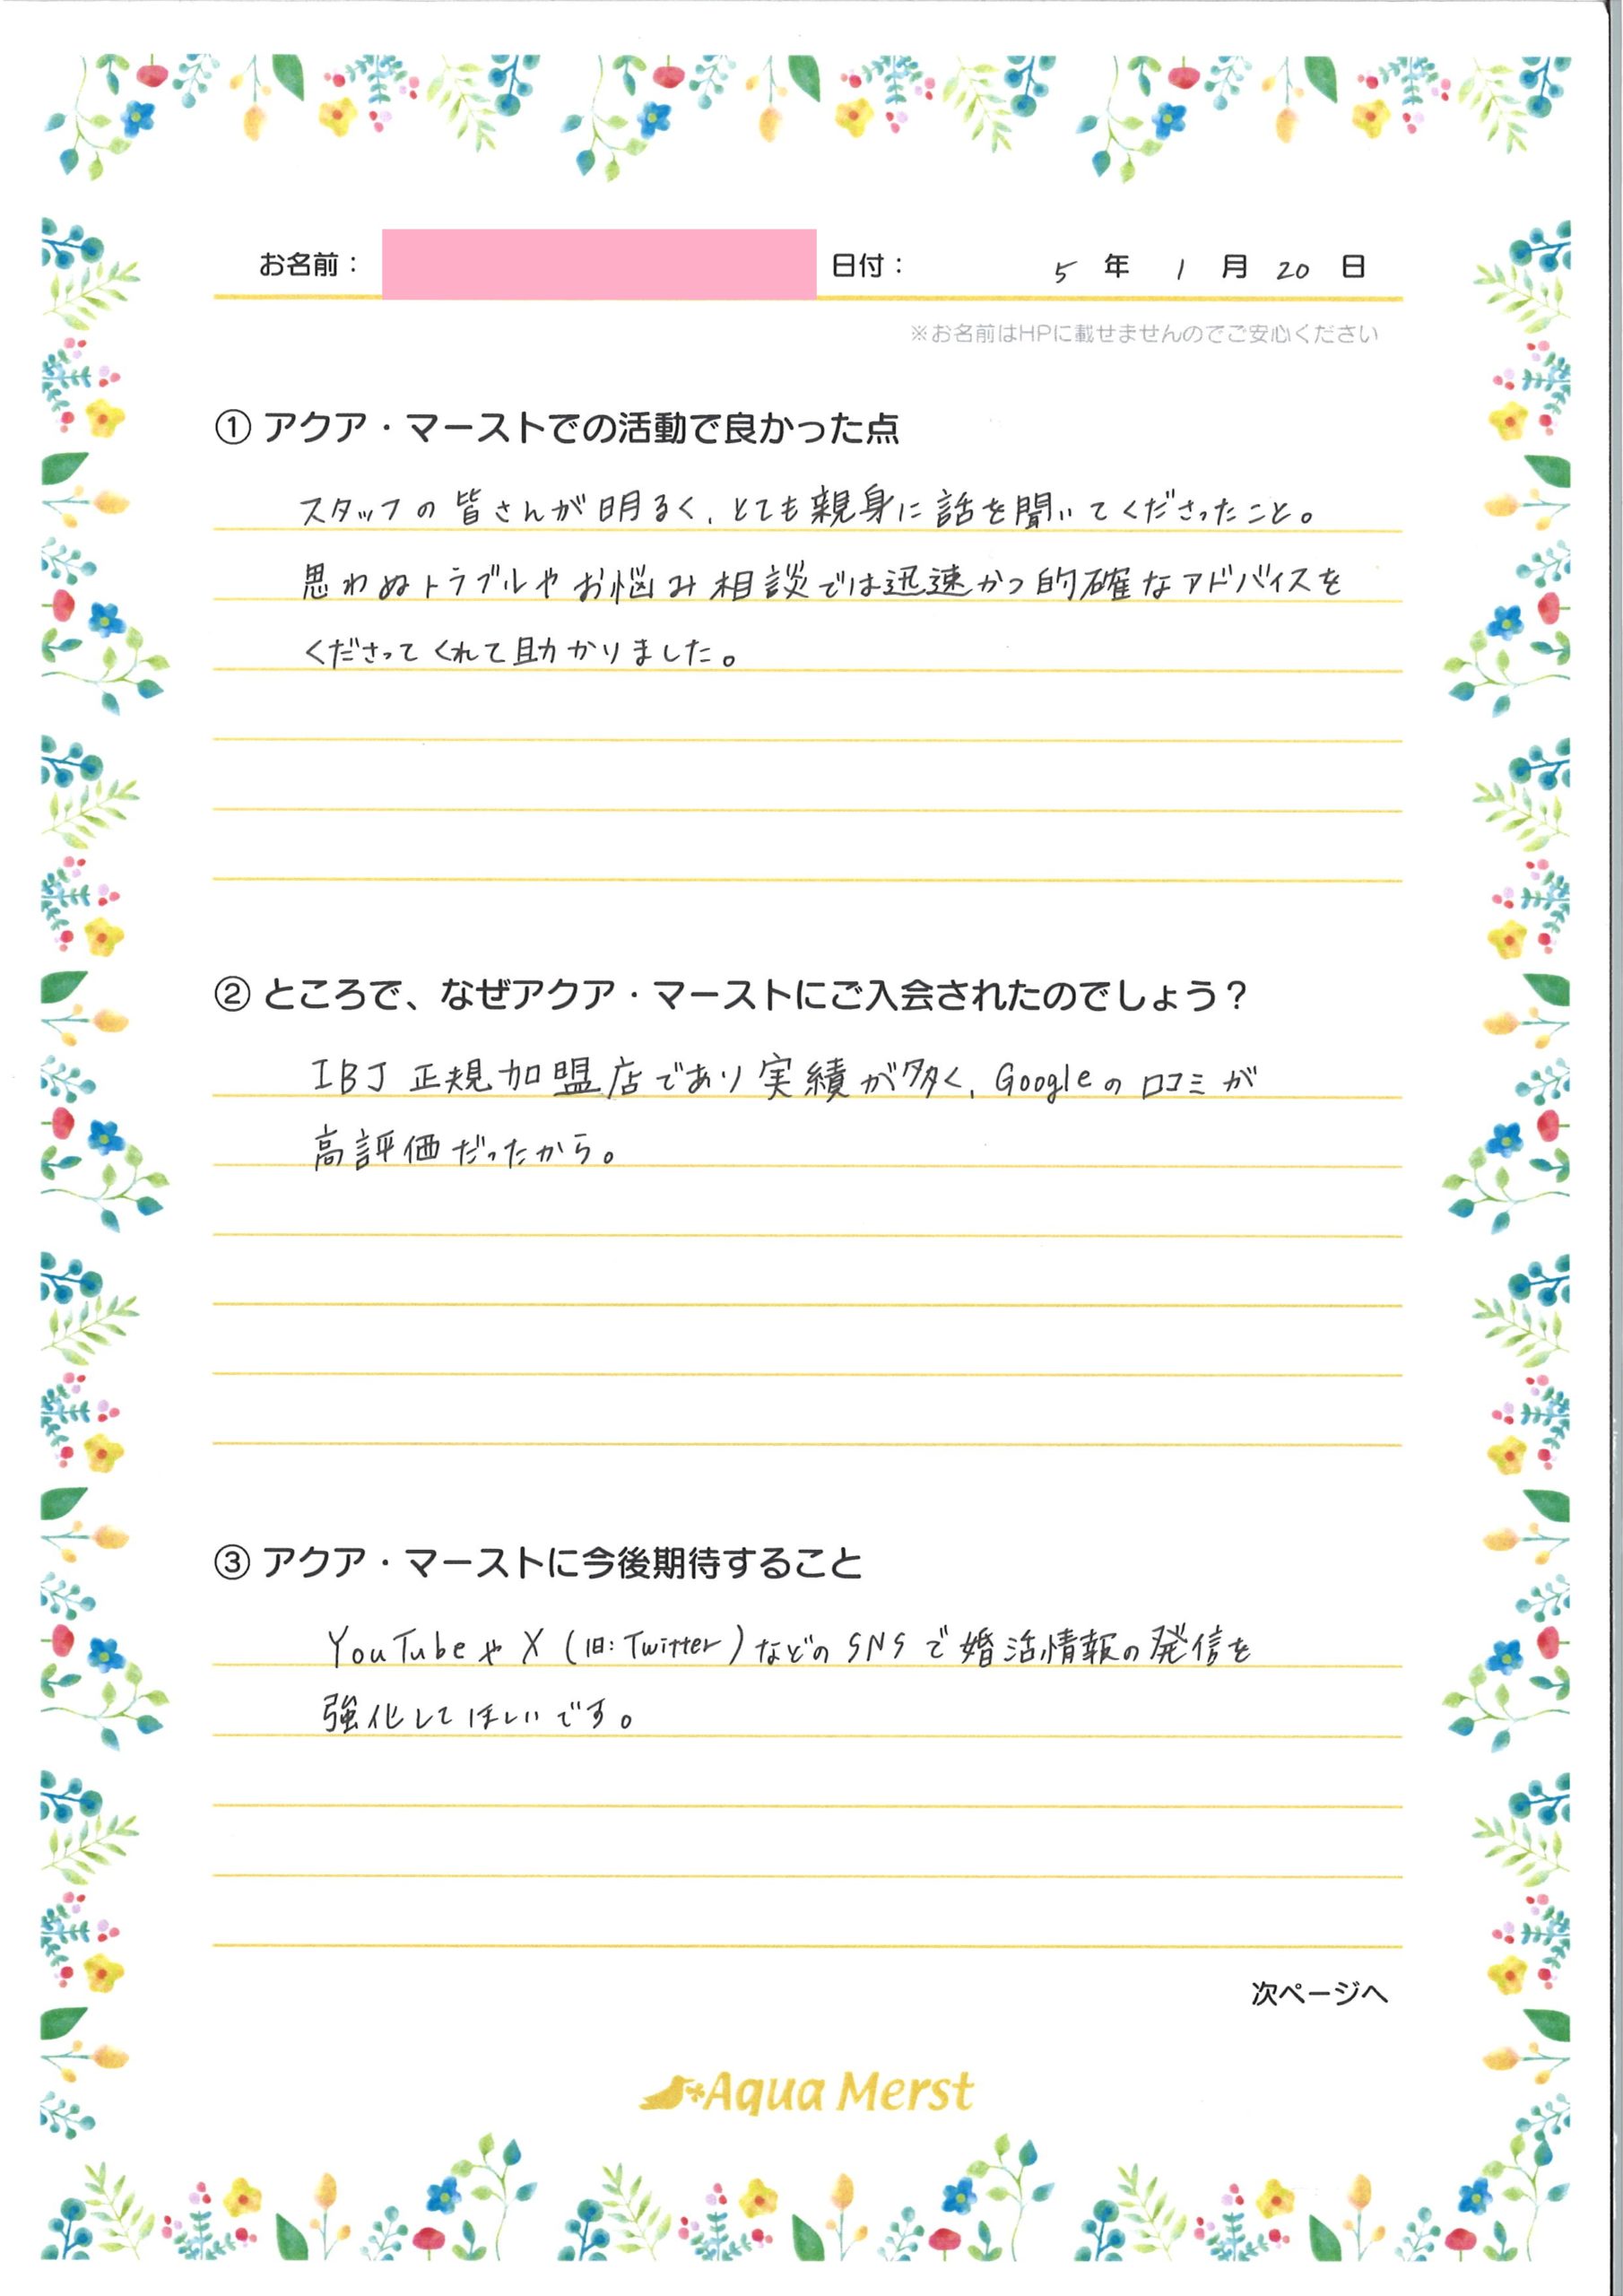 お名前： 日付： 5 年 1 月 20 日
※お名前はHPに載せませんのでご安心ください
① アクア・マーストでの活動で良かった点
スタッフの皆さんが明るく、とても親身に話を聞いてくださったこと。
思わぬトラブルやお悩み相談では迅速かつ的確なアドバイスを
くださってくれて助かりました。
② ところで、なぜアクア・マーストにご入会されたのでしょう？
IBJ正規加盟店であり実績が多く、Googleの口コミが
高評価だったから。
③ アクア・マーストに今後期待すること
YouTubeやX（旧：Twitter）などのSNSで婚活情報の発信を
強化してほしいです。
次ページへ
Aqua Merst